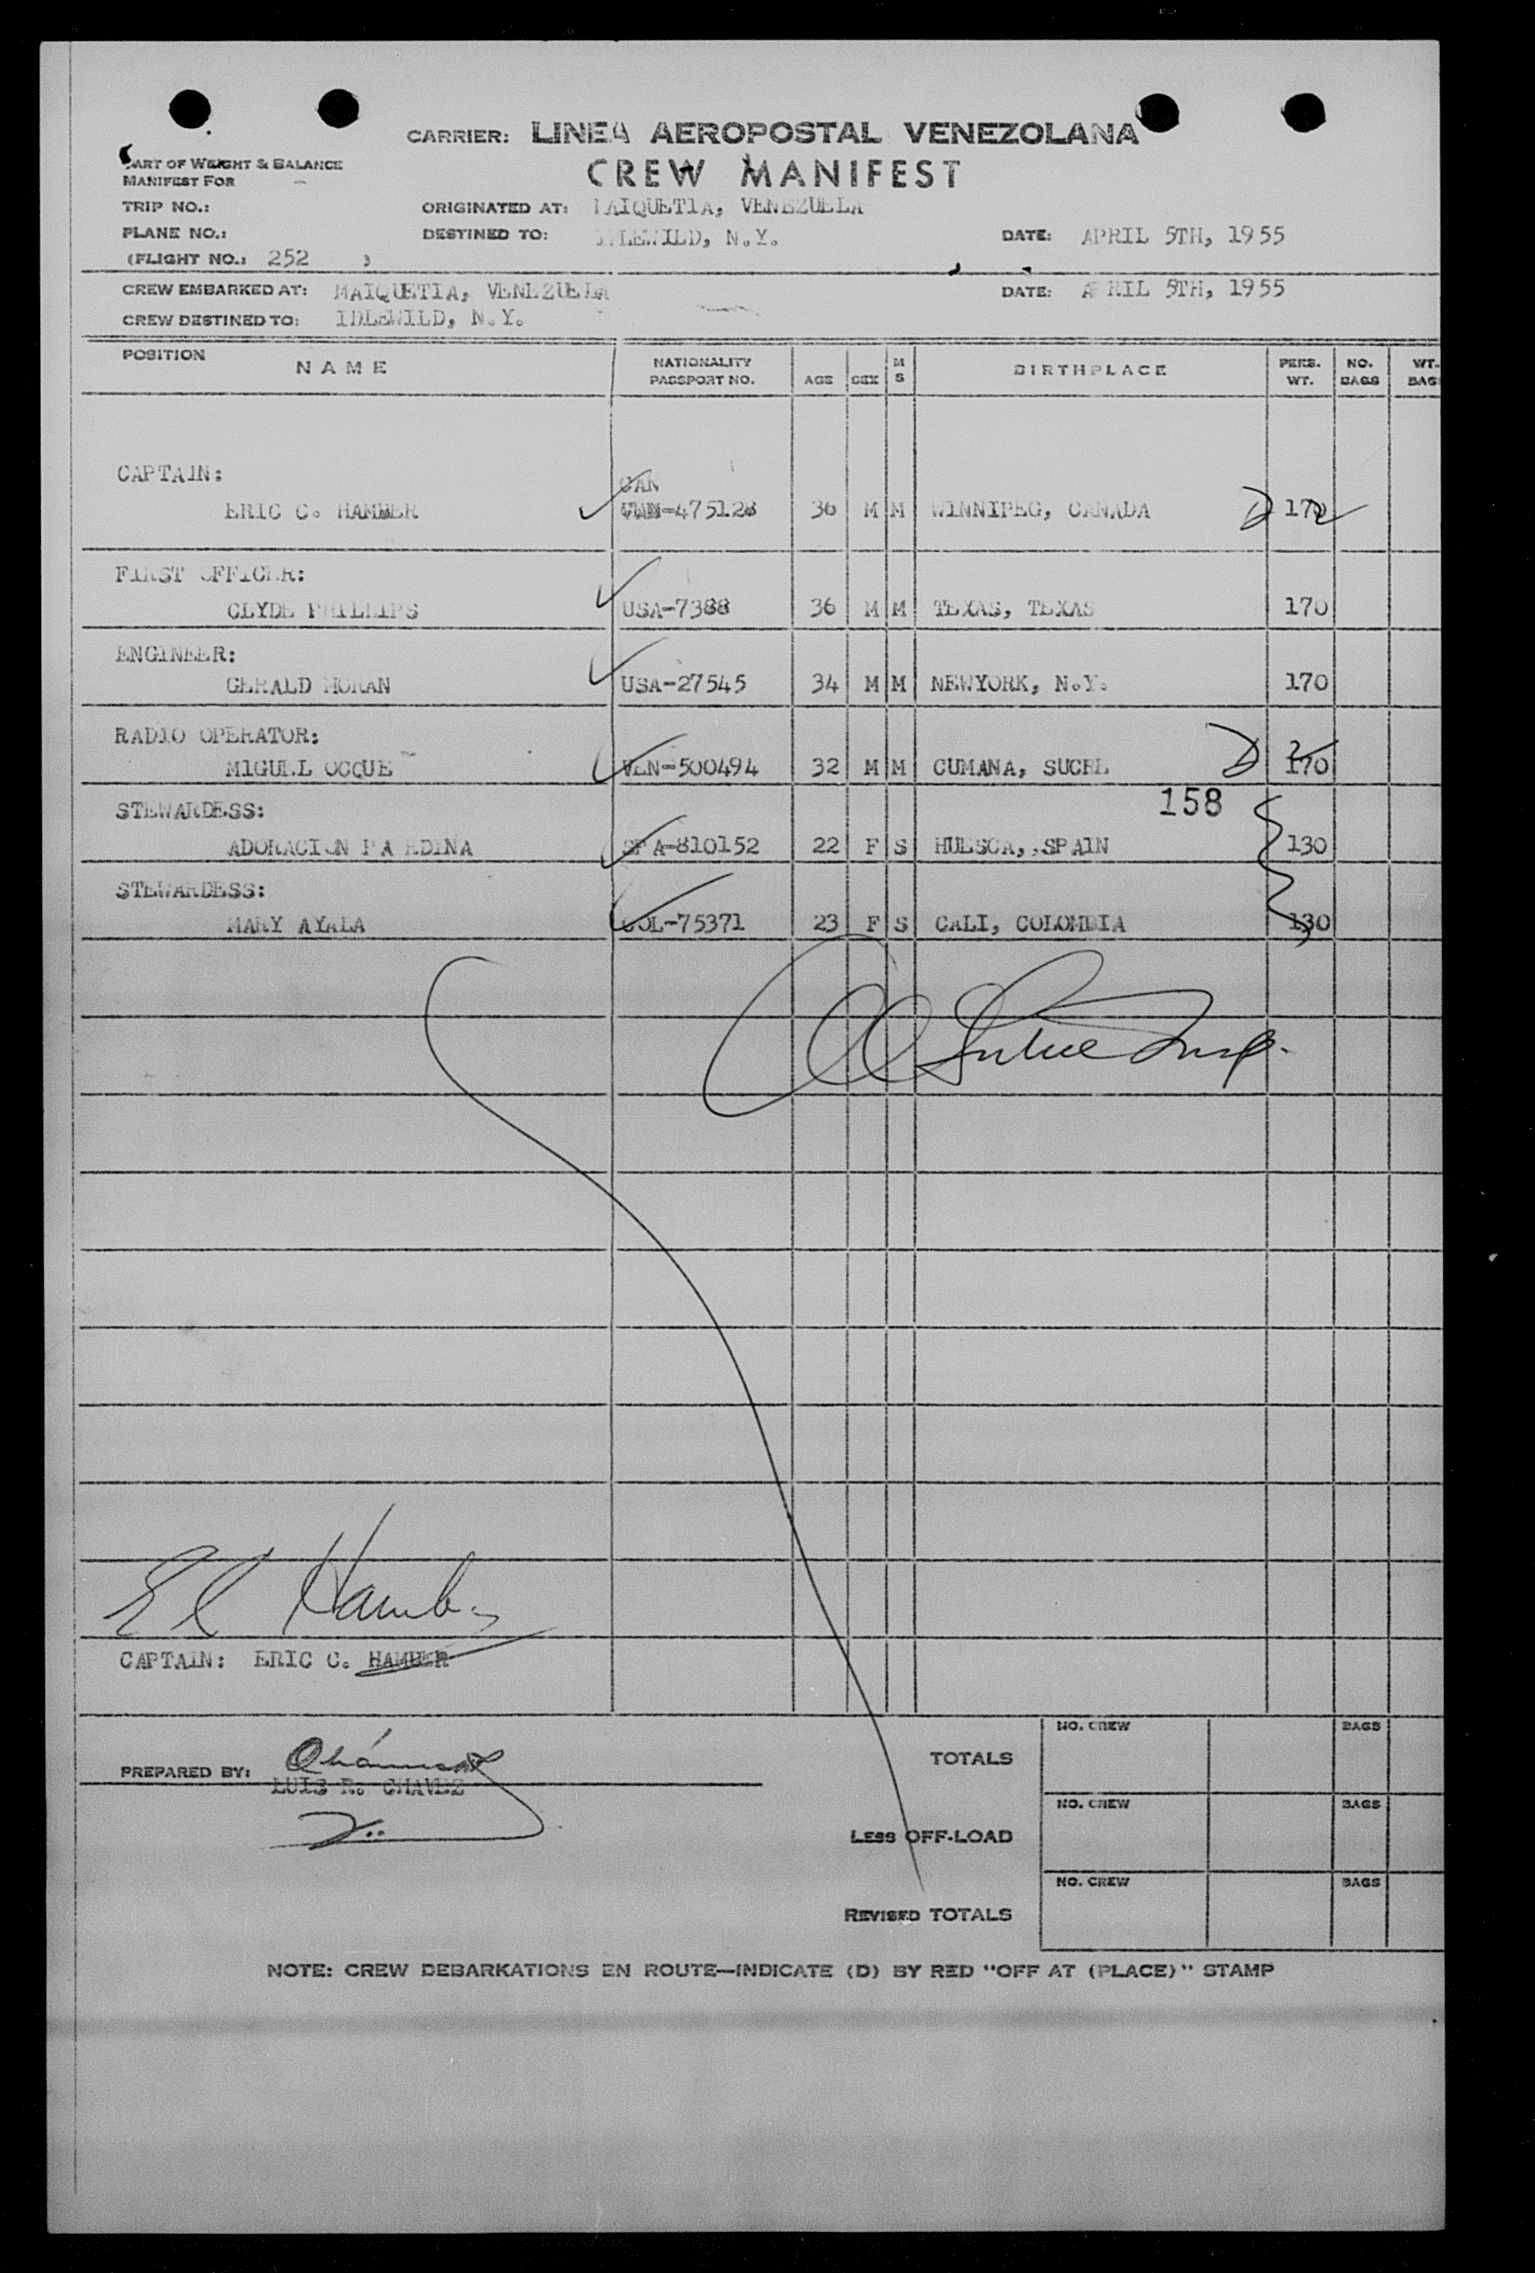 CARRIER: LINEA AEROPOSTAL VENEZOLANA
PART OF WEIGHT & BALANCE
MANIFEST FOR
CREW MANIFEST
TRIP NO.: ORIGINATED AT: MAIQUETIA, VENEZUELA
PLANE NO.: DESTINED TO: IDLEWILD, N.Y. DATE: APRIL 5TH, 1955
(FLIGHT NO.: 252 )
CREW EMBARKED AT: MAIQUETIA, VENEZUELA DATE: APRIL 5TH, 1955
CREW DESTINED TO: IDLEWILD, N.Y.
POSITION NAME NATIONALITY PASSPORT NO. AGE SEX M S BIRTHPLACE PERS. WT. NO. BAGS WT. BAG
CAPTAIN: CAN
ERIC C. HAMBER -475128 36 M M WINNIPEG, CANADA D 170
FIRST OFFICER:
CLYDE PHILLIPS USA-7388 36 M M TEXAS, TEXAS 170
ENGINEER:
GERALD MORAN USA-27545 34 M M NEWYORK, N.Y. 170
RADIO OPERATOR:
MIGUEL OCQUE VEN-500494 32 M M CUMANA, SUCRE D 170
STEWARDESS: 158
ADORACION PARDINA SPA-810152 22 F S HUESCA,,SPAIN 130
STEWARDESS:
MARY AYALA COL-75371 23 F S CALI, COLOMBIA 130
E C Hamber
CAPTAIN: ERIC C. HAMBER
PREPARED BY:
LUIS R. CHAVEZ
TOTALS NO. CREW BAGS
LESS OFF-LOAD NO. CREW BAGS
REVISED TOTALS NO. CREW BAGS
NOTE: CREW DEBARKATIONS EN ROUTE—INDICATE (D) BY RED "OFF AT (PLACE)" STAMP